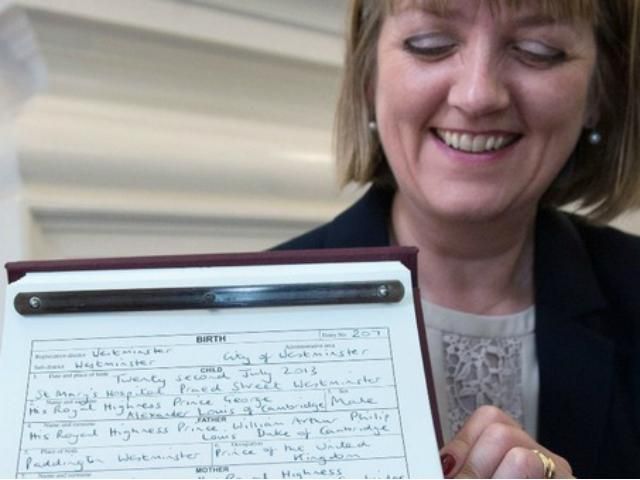 BIRTH Entry No. 207
Registration district Westminster Administrative area
Sub-district Westminster City of Westminster
1. Date and place of birth CHILD
Twenty second July 2013
St Mary's Hospital Praed Street Westminster
2. Name and surname 3. Sex
His Royal Highness Prince George
Alexander Louis of Cambridge Male
FATHER
4. Name and surname
His Royal Highness Prince William Arthur Philip
Louis Duke of Cambridge
5. Place of birth 6. Occupation
Paddington Westminster Prince of the United
Kingdom
MOTHER
7. Name and surname
Royal Highness